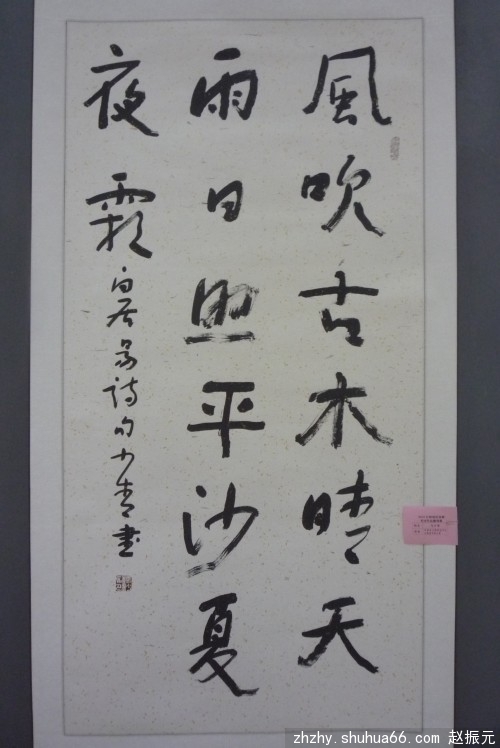 風吹古木晴天
雨日照平沙夏
夜霜
白居易詩句少青書
zhzhy.shuhua66.com 赵振元